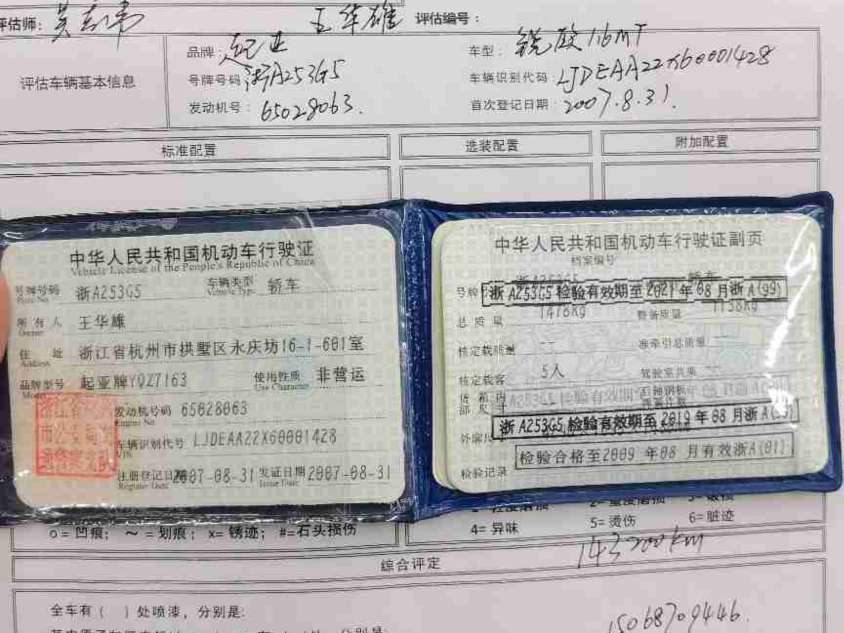 评估师: 王华雄 评估编号:
品牌: 起亚 车型: 锐欧1.6MT
评估车辆基本信息 号牌号码 浙A253G5 车辆识别代码: LJDEAA22X60001428
发动机号: 65028063. 首次登记日期: 2007.8.31.
标准配置 选装配置 附加配置
中华人民共和国机动车行驶证
Vehicle License of the People's Republic of China
号牌号码 浙A253G5 车辆类型 轿车
Plate No. Vehicle Type
所有人 王华雄
Owner
住址 浙江省杭州市拱墅区永庆坊16-1-601室
Address
品牌型号 起亚牌YQZ7163 使用性质 非营运
Use Character
发动机号码 65028063
Engine No
车辆识别代号 LJDEAA22X60001428
VIN
注册登记日期 2007-08-31 发证日期 2007-08-31
Register Date Issue Date
中华人民共和国机动车行驶证副页
档案编号
浙A253G5 轿车
号牌 浙A253G5 检验有效期至2021年08月浙A(99)
总质量 1478KG 整备质量 1138KG
核定载质量 -- 准牵引总质量 --
核定载客 5人 驾驶室共乘 --
浙A253G5 检验有效期至2019年08月浙A
外廓尺
检验合格至2009年08月有效浙A(01)
检验记录
4=异味 5=烫伤 6=脏迹
o=凹痕; ~=划痕; x=锈迹; #=石头损伤
143200km
综合评定
全车有( )处喷漆，分别是:
15068709446.